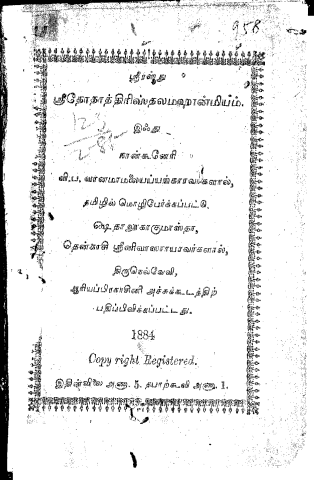 958
ஸ்ரீரஸ்து
ஸ்ரீதோதாத்திரிஸ்தலமஹான்மியம்.
இஃது
நான்கூனேரி
வி.ப. வானமாமலையய்யங்காரவர்களால்,
தமிழில் மொழிபேர்க்கப்பட்டு,
ஷெ தாலூகாகுமாஸ்தா,
தென்காசி ஸ்ரீனிவாஸராயரவர்களால்,
திருநெல்வேலி,
ஆரியப்பிரகாசினி அச்சுக்கூடத்திற்
பதிப்பிவிக்கப்பட்டது.
1884
Copy right Registered.
இதின்விலை அணு. 5. தபாற்கூலி அணு. 1.